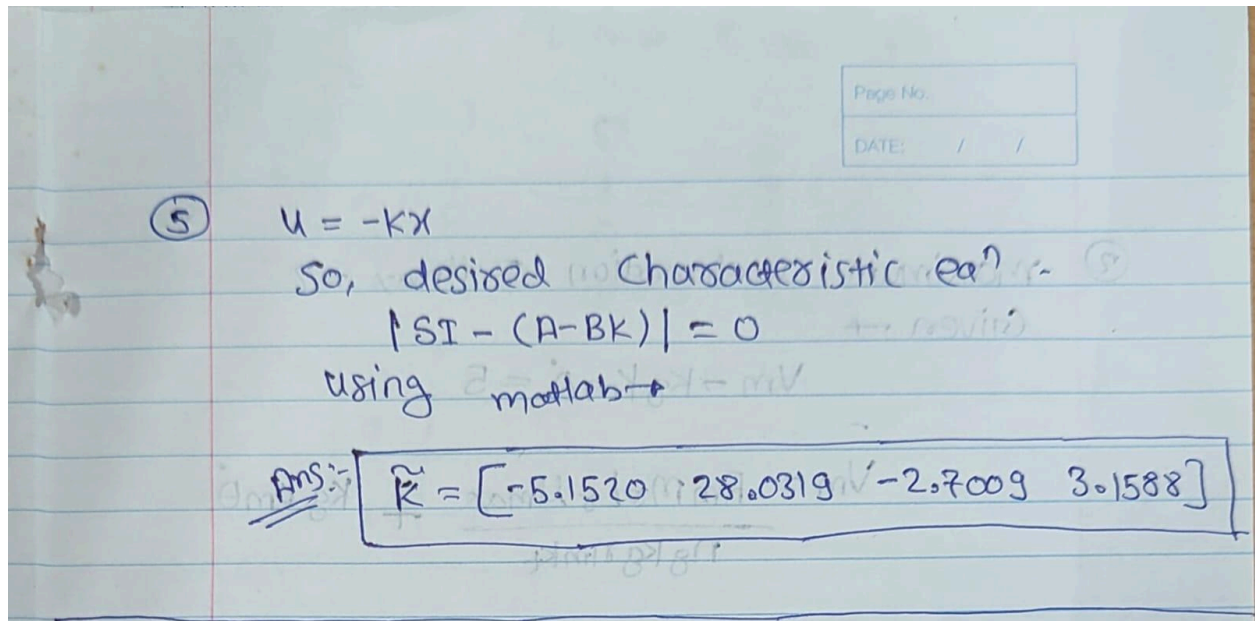 Page No.
DATE: / /
5 u = -Kx
So, desired Characteristic eqn :-
|SI - (A-BK)| = 0
using matlab →
Ans:- K̃ = [-5.1520 28.0319 -2.7009 3.1588]